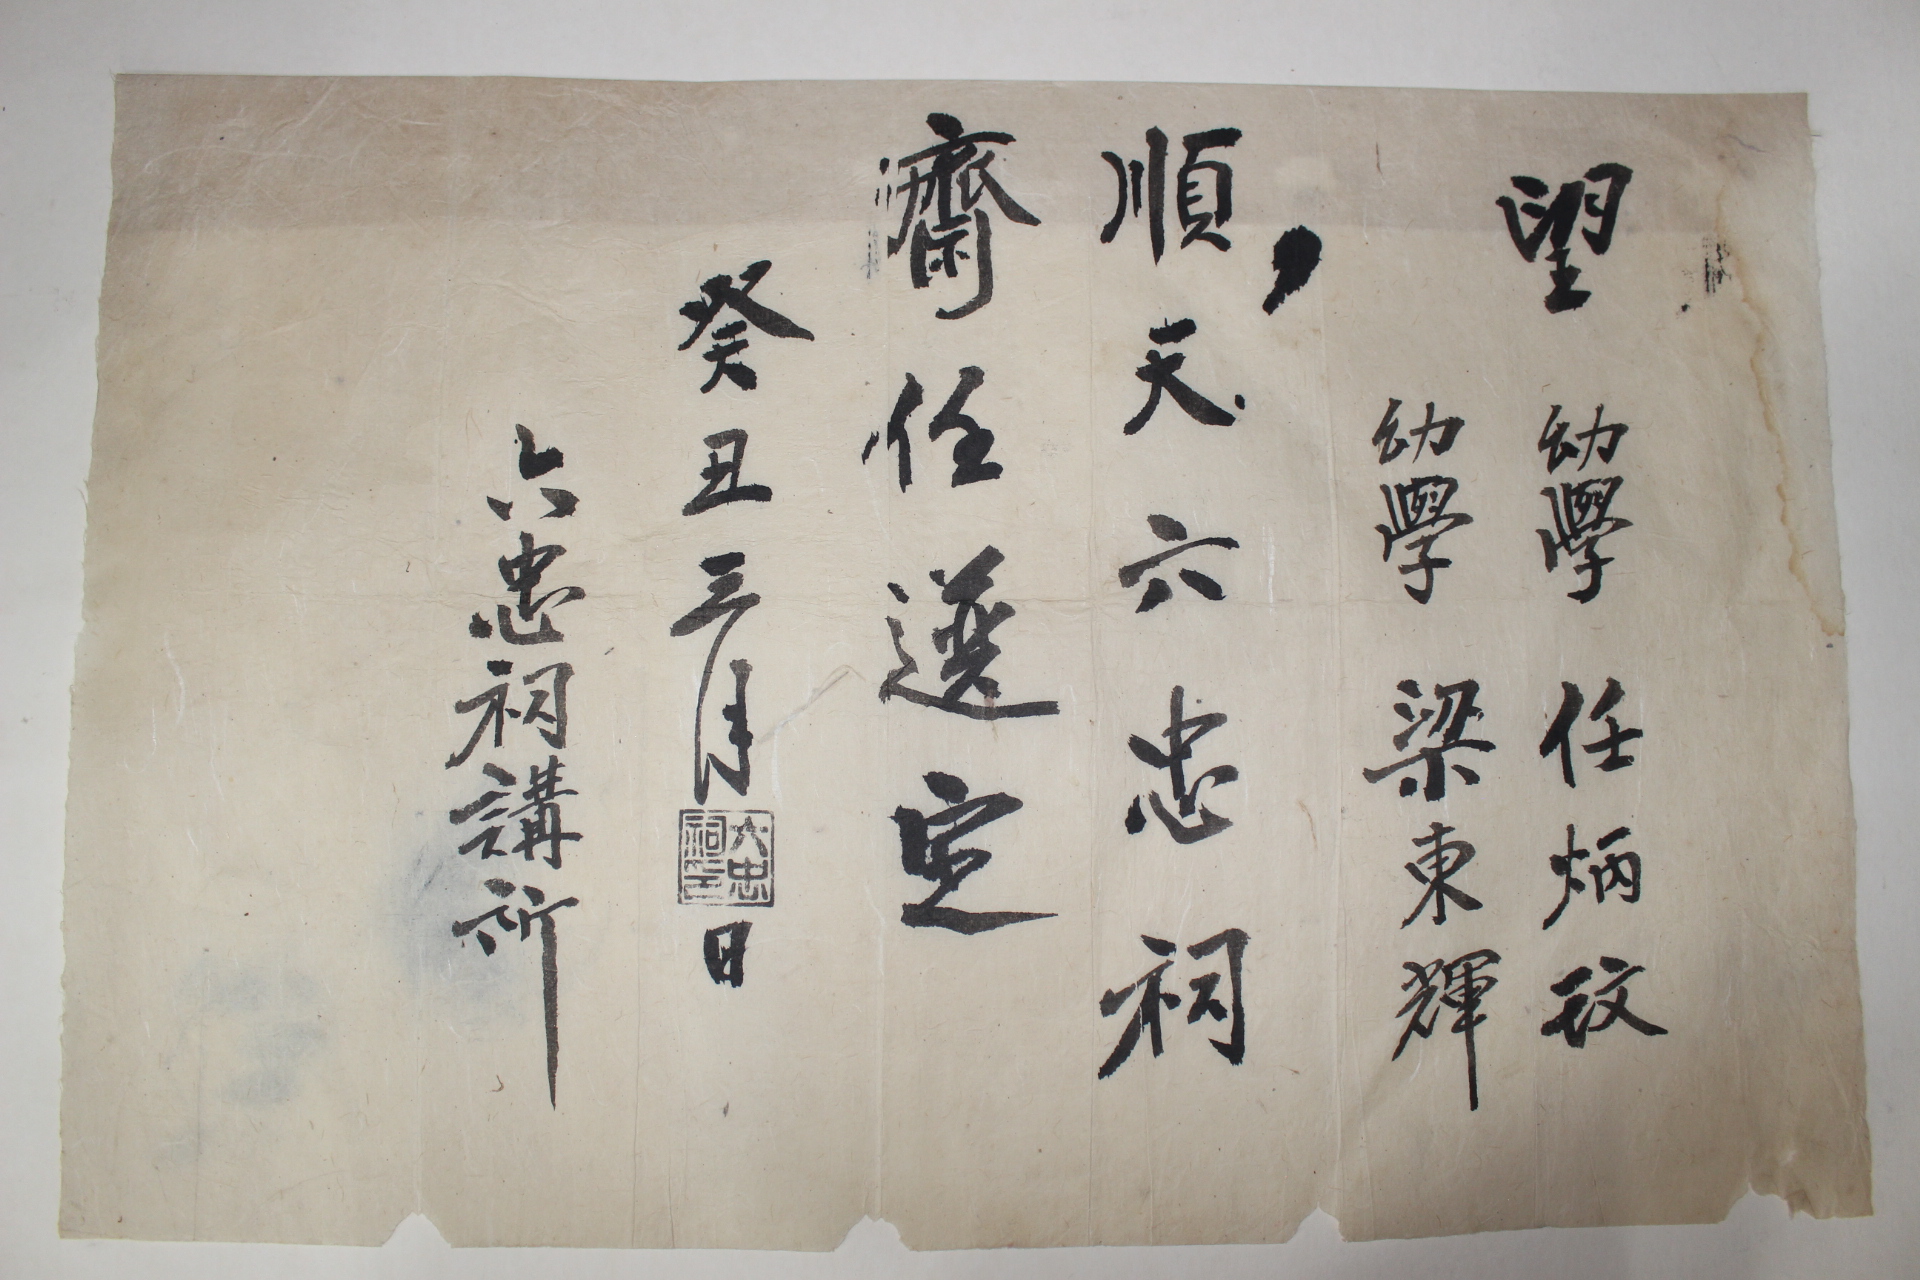 望 幼學 任炳玟
幼學 梁東輝
順天六忠祠
齋任選定
癸丑三月 日
六忠祠印
六忠祠講所